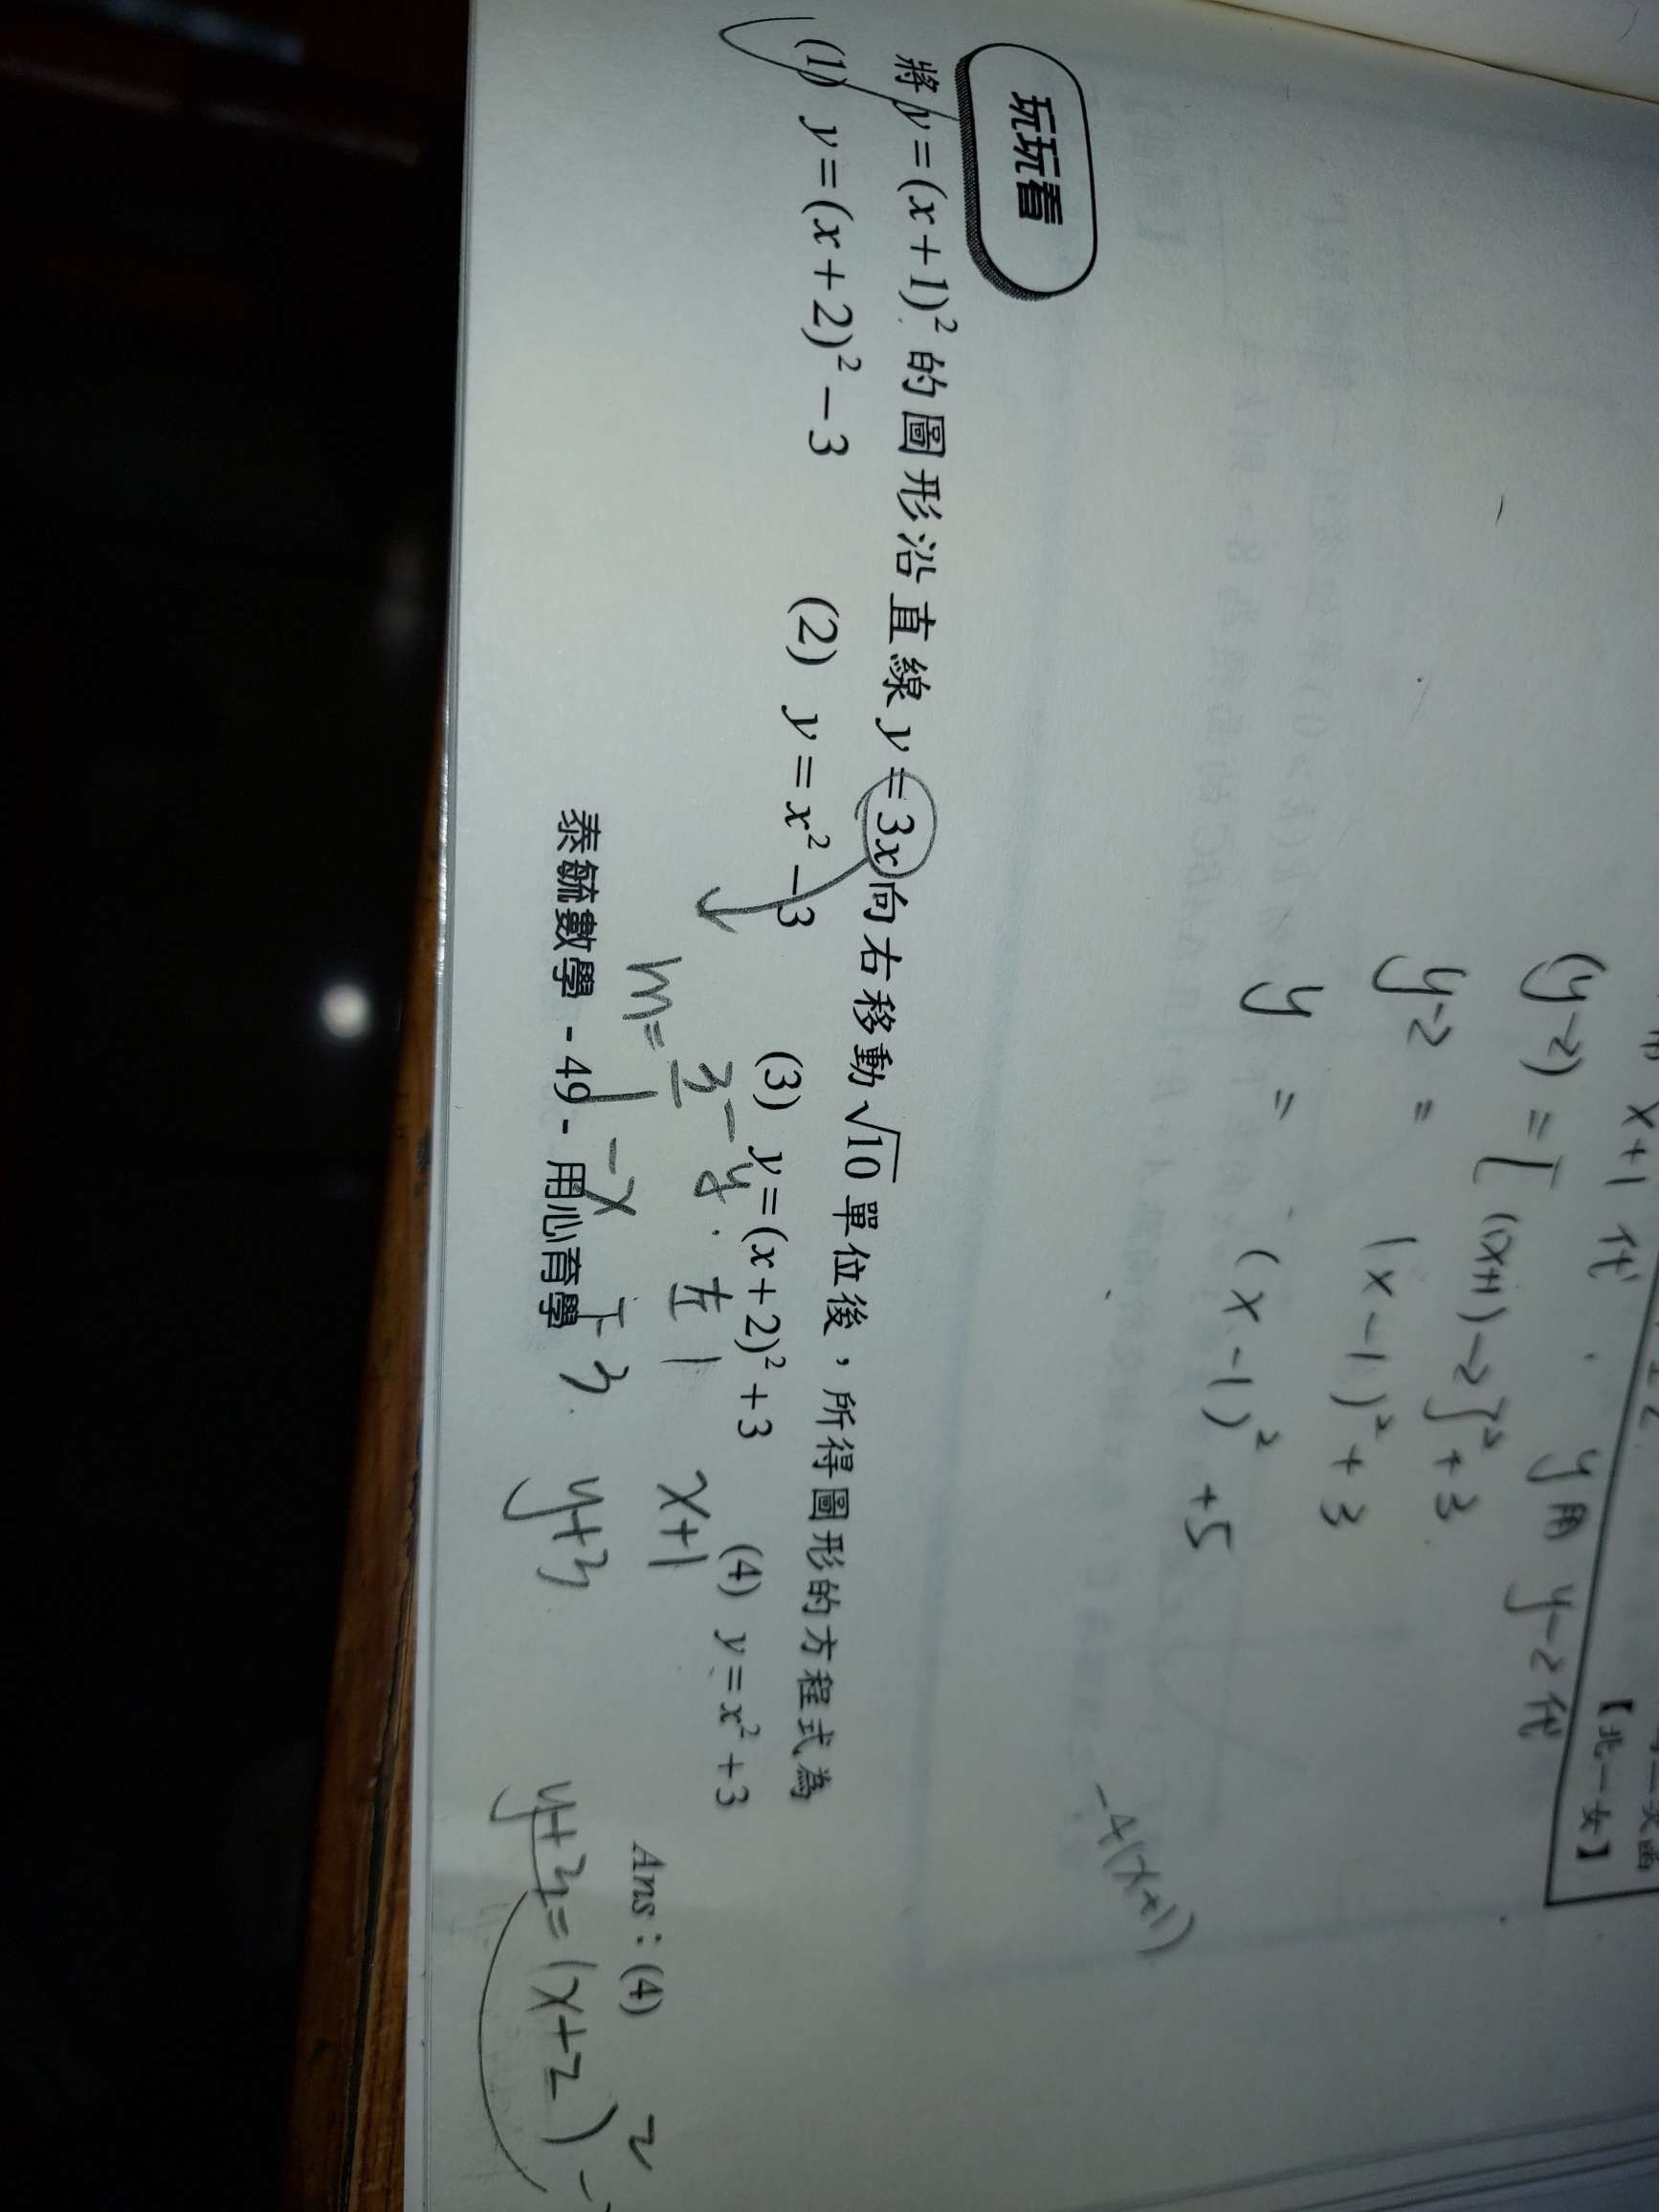 【北一女】
x+1 代 y用 y-2代
(y-2) = [(x+1)-2]²+3
y-2 = (x-1)²+3
y = (x-1)²+5
-4(x+1)
玩玩看
將 y=(x+1)² 的圖形沿直線 y=3x 向右移動 √10 單位後，所得圖形的方程式為
(1) y=(x+2)²-3 (2) y=x²-3 (3) y=(x+2)²+3 (4) y=x²+3
Ans：(4)
m= 3/1 -y -x
左1 x+1
下3. y+3
y+3=(x+2)²
泰毓數學 - 49 - 用心育學